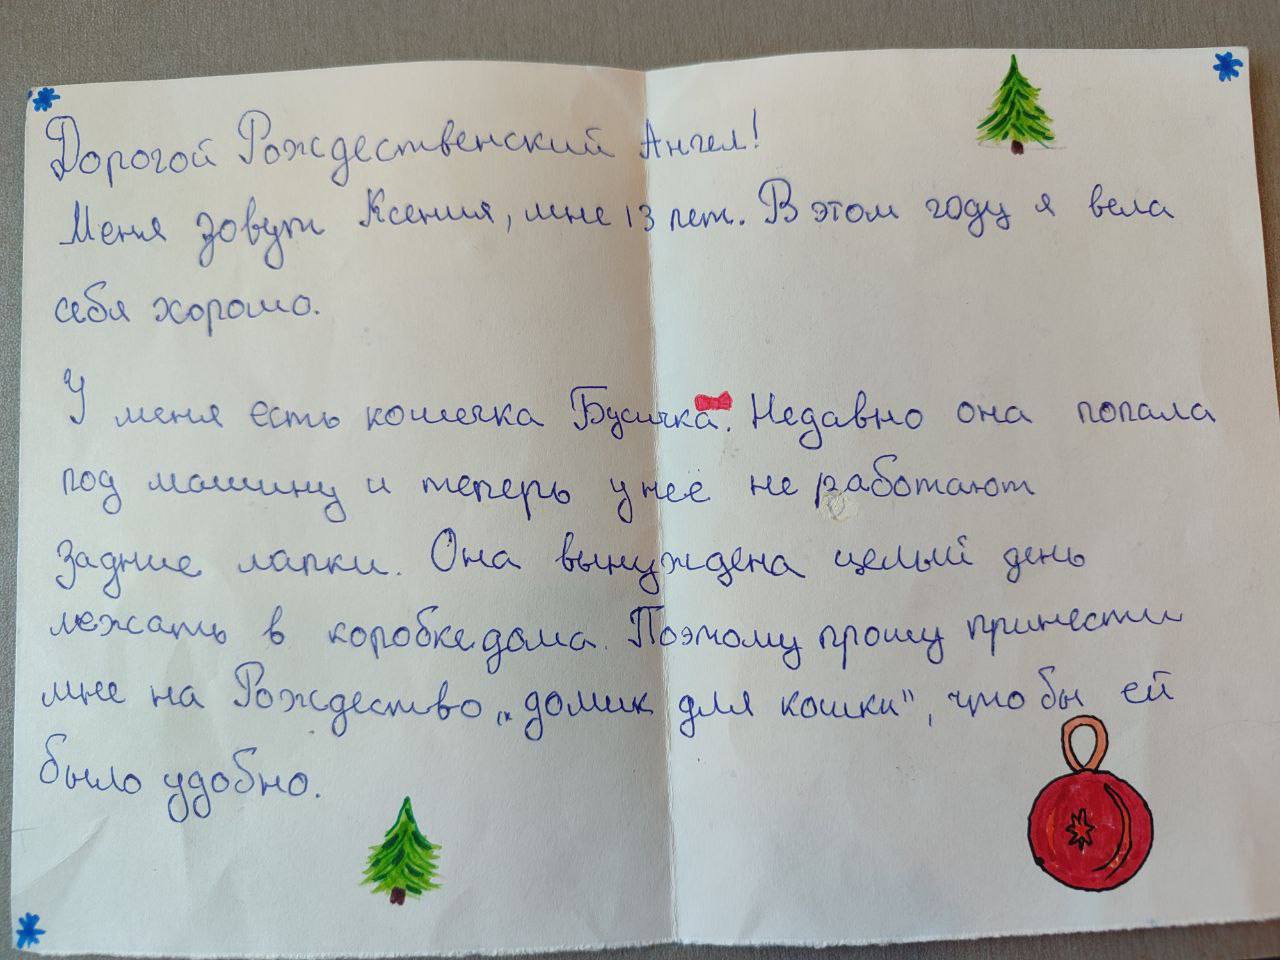 Дорогой Рождественский Ангел!
Меня зовут Ксения, мне 13 лет. В этом году я вела
себя хорошо.
У меня есть кошечка Бусичка. Недавно она попала
под машину и теперь у неё не работают
задние лапки. Она вынуждена целый день
лежать в коробке дома. Поэтому прошу принести
мне на Рождество „домик для кошки", чтобы ей
было удобно.